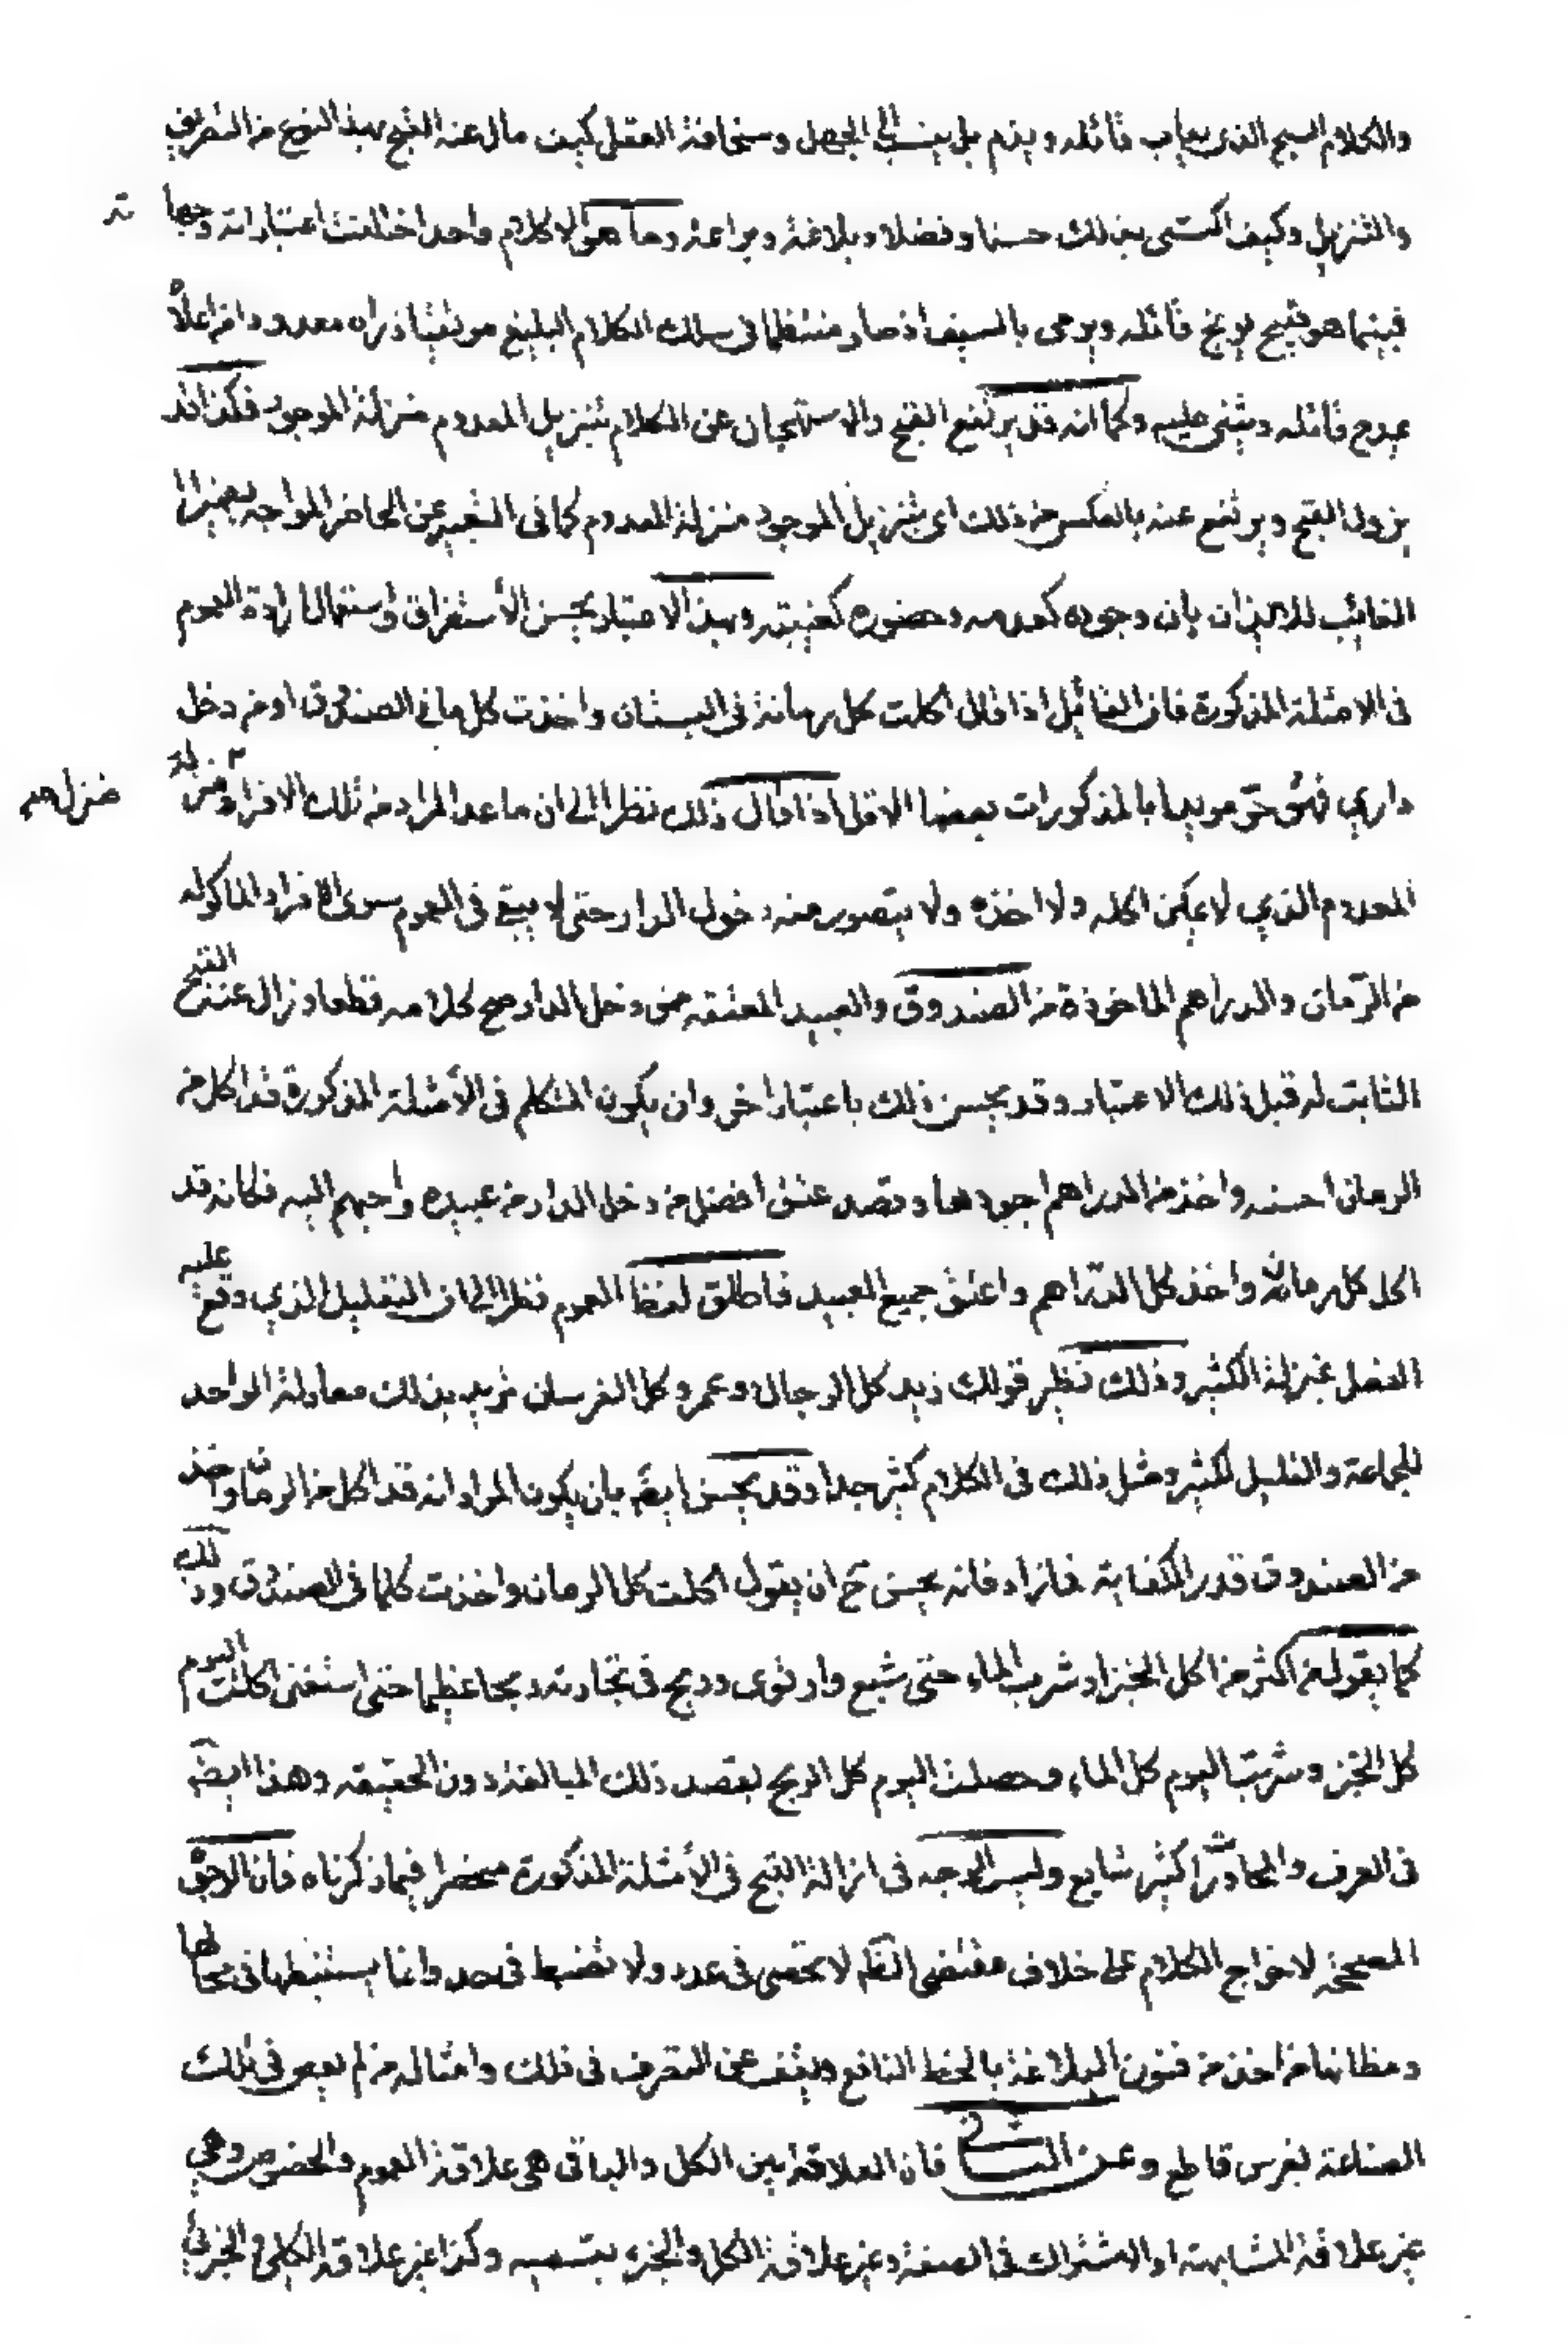 والكلام السمج الذى يعاب قائله ويذم بل ينسب الى الجهل وسخافة العقل كيف مال عنه القبح بهذا النوع من التصريف
والتنزيل وكيف اكتسى بذلك حسنا وفضلا وبلاغة وبراعة وما هو الا كلام واحد اختلفت اعتباراته وجهاته
فبينما هو قبيح يوبخ قائله ويرمى بالسيف اذ صار منتظما فى سلك الكلام البليغ مرتفعا ذراه معدودا من اعلاه
يمدح قائله ويثنى عليه وكما انه قد يرتفع القبح والاستهجان عن الكلام بتنزيل المعدوم منزلة الموجود فكذا قد
يزول القبح ويرتفع عنه بالعكس من ذلك اى بتنزيل الموجود منزلة المعدوم كما فى التعبير عن الحاضر المواجه بضمير
الغائب للايذان بان وجوده كعدمه وحضوره كغيبته وبهذا الاعتبار يحسن الأستغراق واستعمال ارادة العموم
فى الامثلة المذكورة فان القائل اذا قال اكلت كل رمانة فى البستان واخذت كل ما فى الصندوق او من دخل
دارى فهو حر مريدا بالمذكورات بعضها الاقل اذا قال ذلك نظرا الى ان ما عدا المراد من تلك الافراد منزل منزلة
المعدوم الذي لا يمكن اكله ولا اخذه ولا يتصور منه دخول الدار حتى لا يبقى فى العموم سوى الافراد الماكوله
من الرّمان والدراهم الماخوذة من الصندوق والعبيد المعتقه ممن دخل الدار صح كلامه قطعا وزال عنه القبح
الثابت له قبل ذلك الاعتبار وقد يحسن ذلك باعتبار اخر وان يكون المتكلم فى الأمثلة المذكورة قد اكل من
الرمان احسنه واخذ من الدراهم اجودها وقصد عتق افضل من دخل الدار من عبيده واحبهم اليه فكانه قد
اكل كل رمانة واخذ كل الدّراهم واعتق جميع العبيد فاطلق لفظ العموم نظرا الى ان التقليل الذي وقع عليه
الفضل بمنزلة الكثير وذلك نظير قولك زيد كل الرجال وعمرو كل الفرسان تريد بذلك معادلة الواحد
للجماعة والقليل للكثير ومثل ذلك فى الكلام كثير جدا وقد يحسن ايضً بان يكون المراد انه قد اكل من الرمان واخذ
من الصندوق قدر الكفاية فما زاد فانه يحسن ح ان يقول اكلت كل الرمان واخذت كلما فى الصندوق وذلك
كما يقول من اكثر من اكل الخبز او شرب الماء حتى شبع وارتوى وربح فى تجارته ربحا عظيما حتى استغنى اكلت اليوم
كل الخبز وشربت اليوم كل الماء وحصلت اليوم كل الربح يقصد ذلك المبالغة دون الحقيقه وهذا ايضً
فى العرف والمحاورات كثير شايع وليس الوجه فى ازالة القبح فى الأمثلة المذكورة منحصرا فيما ذكرناه فان الوجوه
المصححة لاخراج الكلام على خلاف مقتضى الظاهر لا تحصى فى عدد ولا تضبط فى حد وانما يستنبطها فى محالها
ومظانها من اخذ من فنون البلاغة بالحظ النافع ويقف عن التصرف فى ذلك وامثاله من لم يعض فى تلك
الصناعة بضرس قاطع وعن الثانى فان العلاقة بين الكل والباقى هى علاقة العموم والخصوص وهي
غير علاقة المشابهة او المشتراك فى الصفة وغير علاقة الكل والجزء بقسميه وكذا غير علاقة الكلى والجزئى